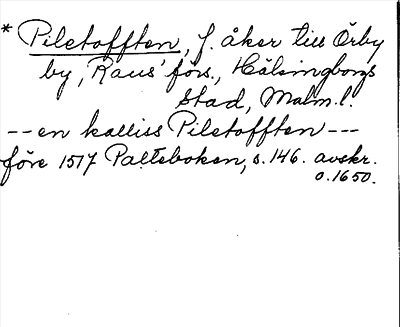 * Piletofften, f. åker till Örby
by, Raus förs., Hälsingborgs
stad, Malm. l.
-- en kalliss Piletofften ---
före 1517 Palteboken, s. 146. avskr.
o. 1650.